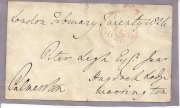 London February Twenty 1826
Peter Legh Esqr Junr
Haydock Lodge
Palmerston Warrington